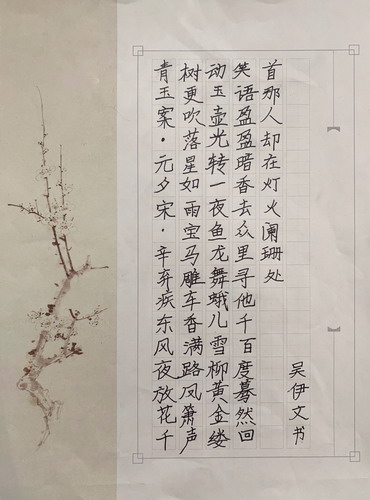 青玉案·元夕宋·辛弃疾东风夜放花千
树更吹落星如雨宝马雕车香满路凤箫声
动玉壶光转一夜鱼龙舞蛾儿雪柳黄金缕
笑语盈盈暗香去众里寻他千百度蓦然回
首那人却在灯火阑珊处
吴伊文书